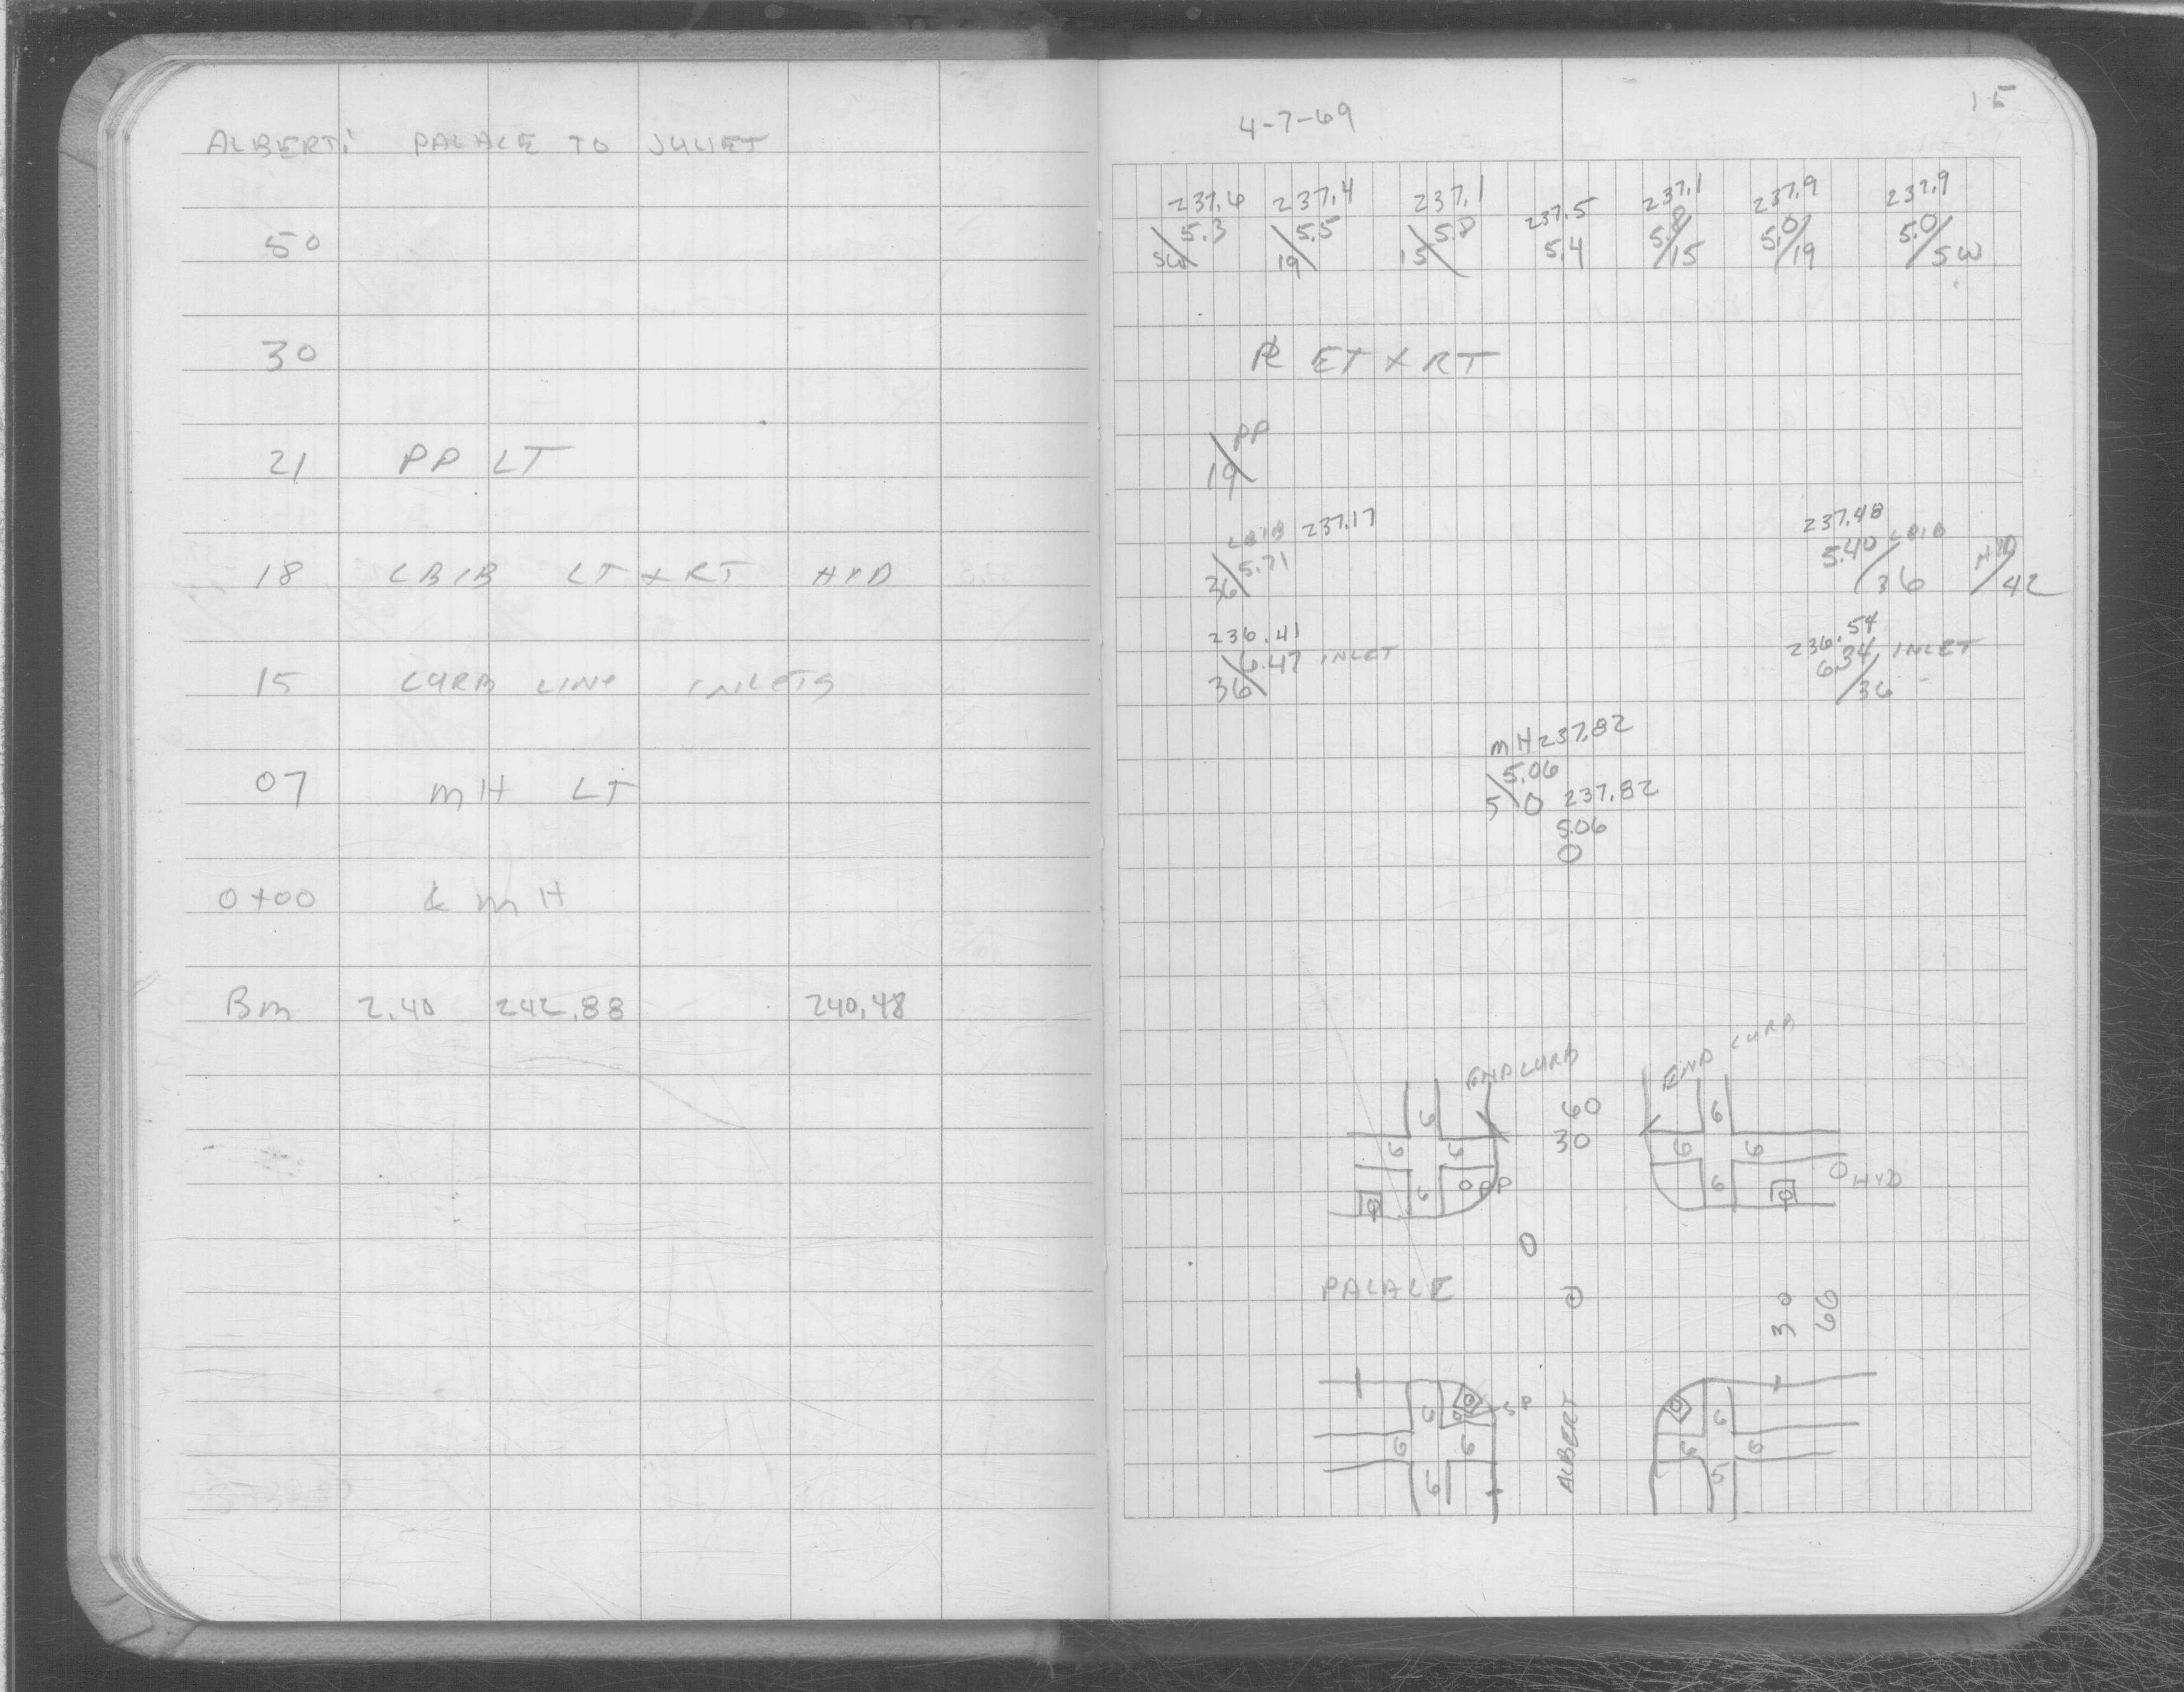 ALBERT: PALACE TO JULIET
50
30
21 PP LT
18 CBIB LT & RT HYD
15 CURB LINE INLETS
07 MH LT
0+00 & MH
BM 2.40 242.88 240.48
4-7-69
15
237.6 237.4 237.1 237.5 237.1 237.9 237.9
5.3 5.5 5.8 5.4 5.8 5.0 5.0
SW 19 15 15 19 SW
PL LT & RT
PP
19
CBIB 237.17 237.48
5.71 5.40 CBIB HYD
36 36 42
236.41 236.54
6.47 INLET 6.34 INLET
36 36
MH 237.82
5.06
5 0 237.82
5.06
0
END CURB END CURB
6 60 6
30
6 6 6 6
6 PP 6 HYD
PALACE
30 60
6 SP ALBERT 6
6 6 6 6
6 5